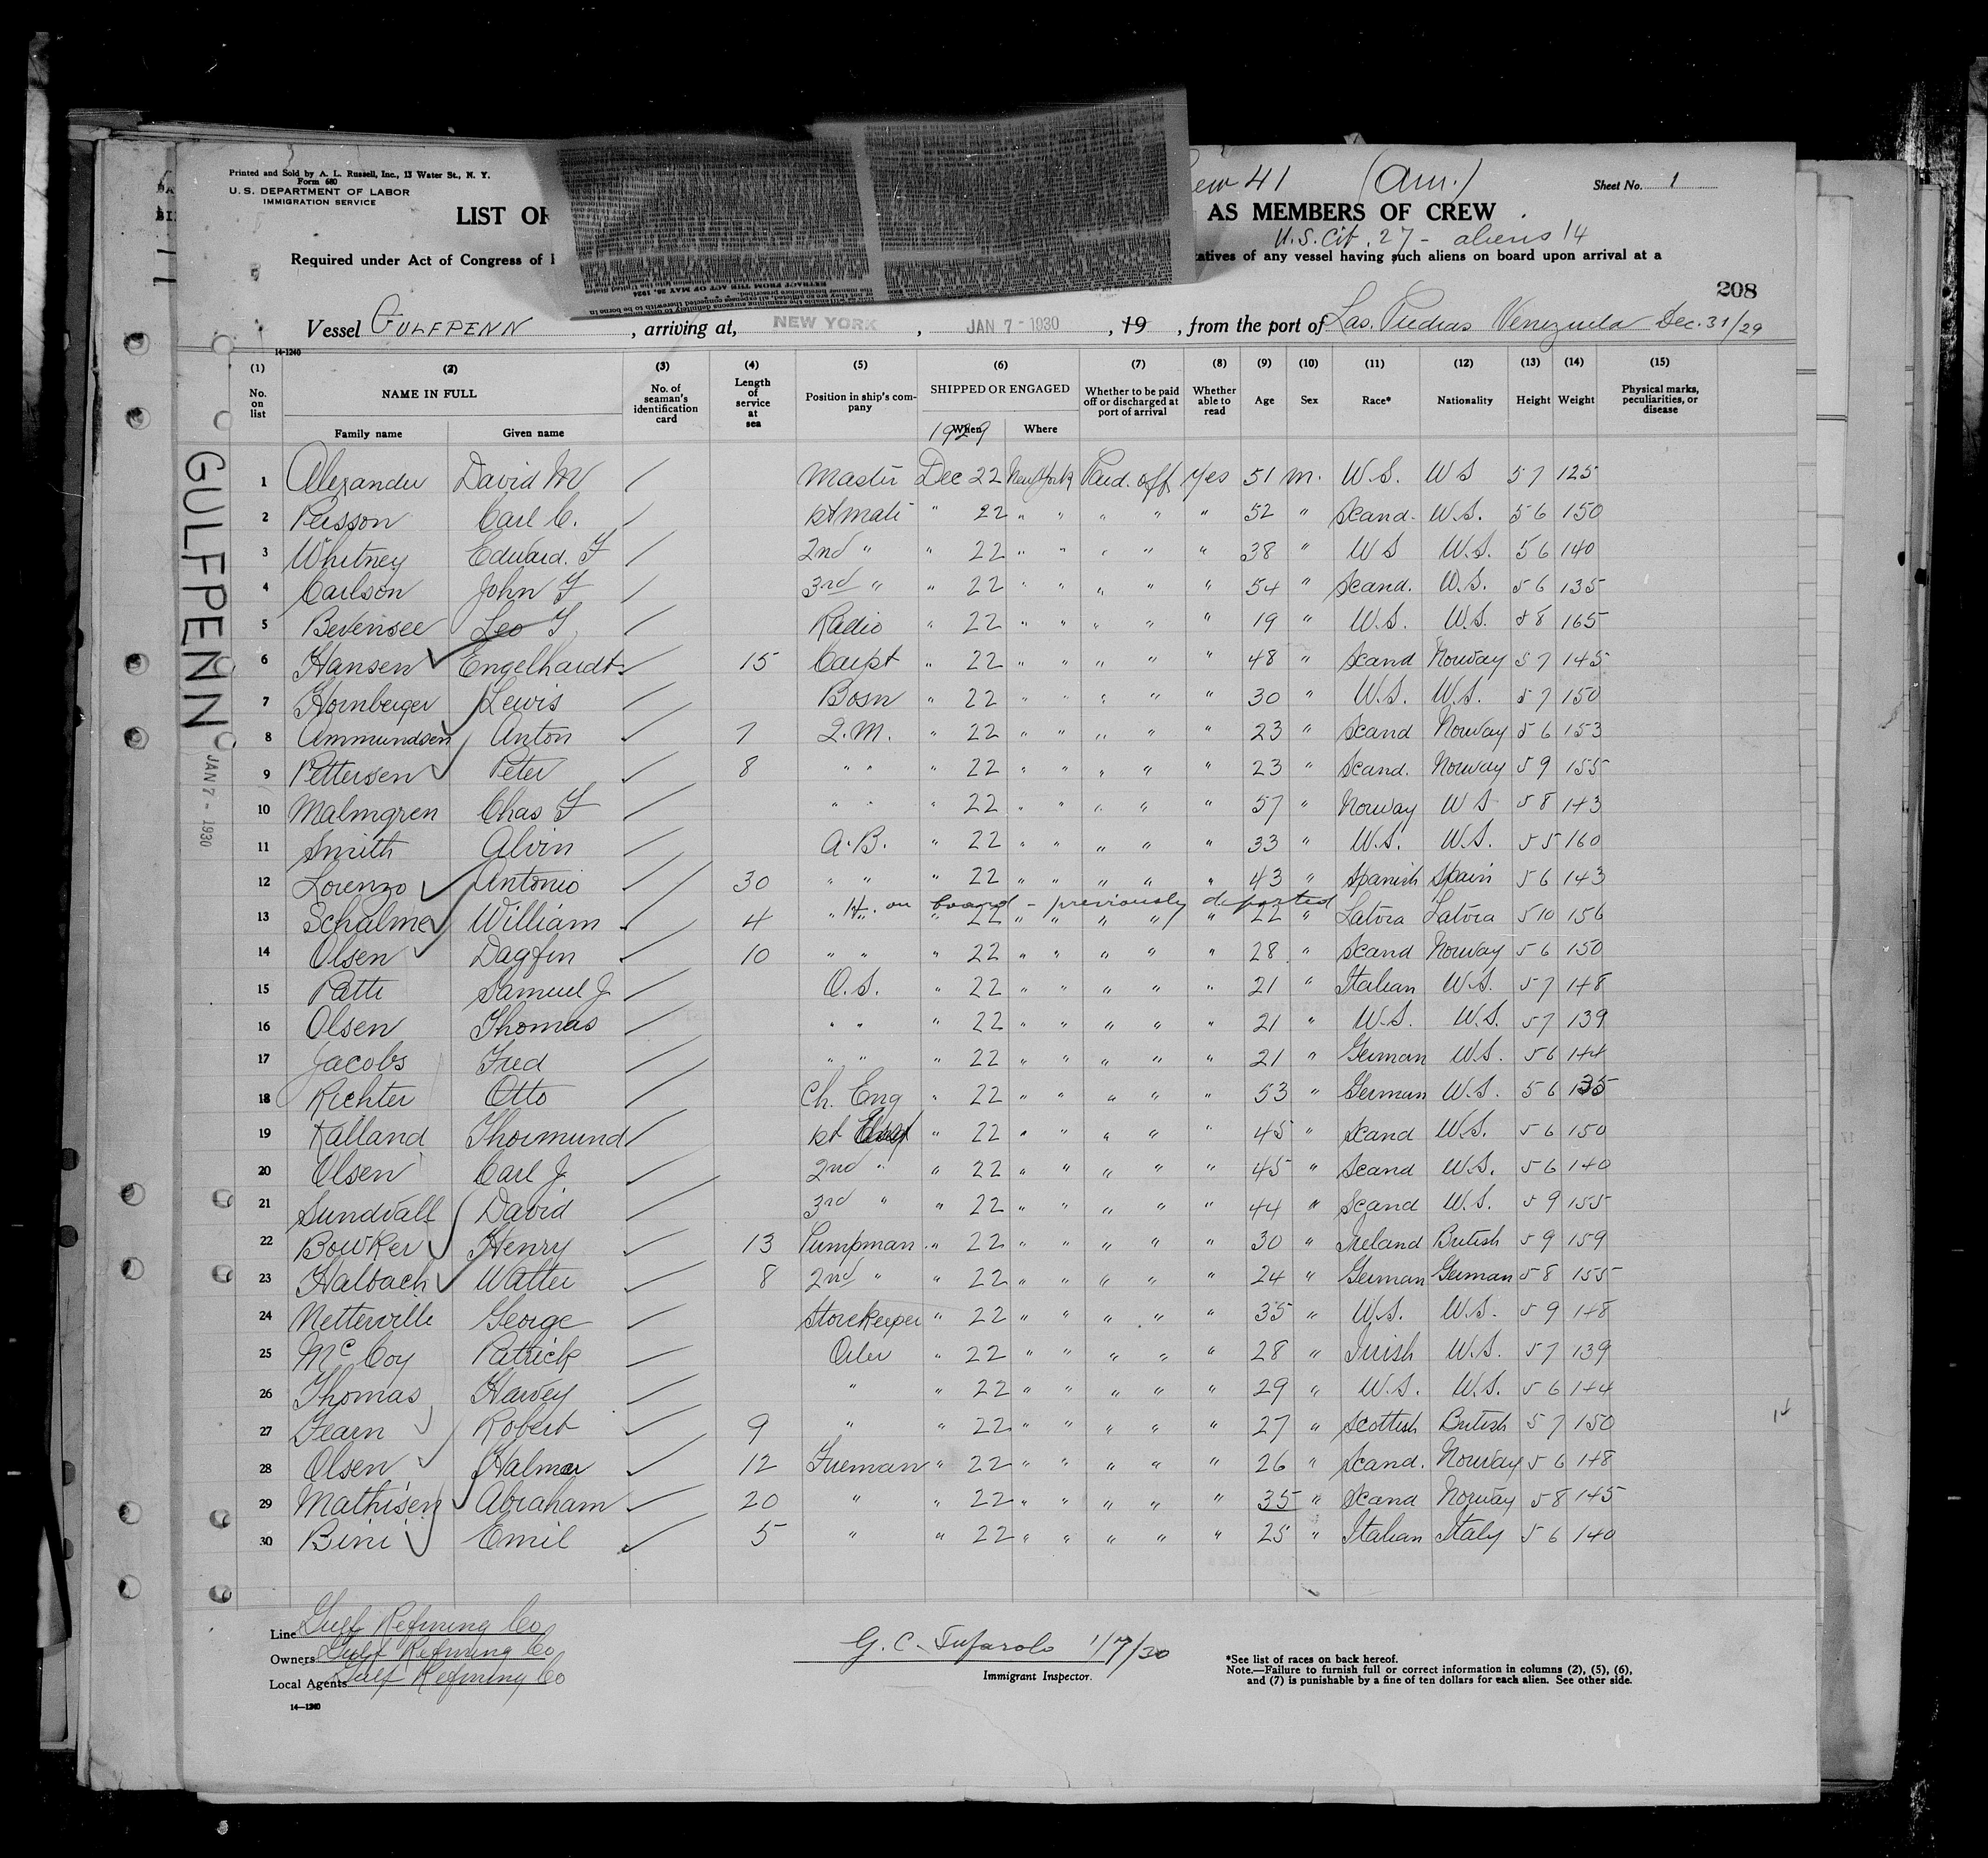 Printed and Sold by A. L. Russell, Inc., 13 Water St., N. Y.
Form 680
U. S. DEPARTMENT OF LABOR
IMMIGRATION SERVICE
41 (Am.)
Sheet No. 1
LIST OF AS MEMBERS OF CREW
U.S. Cit. 27 - aliens 14
Required under Act of Congress of of any vessel having such aliens on board upon arrival at a
EXTRACT FROM THE ACT OF MAY 26, 1924
208
Vessel GULFPENN, arriving at, NEW YORK, JAN 7 - 1930, 19, from the port of Las. Piedras Venezuela Dec. 31/29
14-1240
(1) (2) (3) (4) (5) (6) (7) (8) (9) (10) (11) (12) (13) (14) (15)
No. on list NAME IN FULL No. of seaman's identification card Length of service at sea Position in ship's company SHIPPED OR ENGAGED Whether to be paid off or discharged at port of arrival Whether able to read Age Sex Race* Nationality Height Weight Physical marks, peculiarities, or disease
Family name Given name When Where
1929
1 Alexander David M / Master Dec 22 New York Paid. off yes 51 m. U.S. US 5 7 125
2 Persson Carl C. / 1st mate " 22 " " " " " 52 " Scand. U.S. 5 6 150
3 Whitney Edward. F / 2nd " " 22 " " " " " 38 " US U.S. 5 6 140
4 Carlson John F / 3rd " " 22 " " " " " 54 " Scand. U.S. 5 6 135
5 Bevensee Leo F / Radio " 22 " " " " " 19 " U.S. U.S. 5 8 165
6 Hansen ✓ Engelhardt / 15 Carpt " 22 " " " " " 48 " Scand Norway 5 7 145
7 Hornberger Lewis / Bosn " 22 " " " " " 30 " U.S. U.S. 5 7 150
8 Ammundsen ✓ Anton ✓ 7 Q.M. " 22 " " " " " 23 " Scand Norway 5 6 153
9 Pettersen ✓ Peter ✓ 8 " " " 22 " " " " " 23 " Scand. Norway 5 9 155
10 Malmgren Chas F / " " " 22 " " " " " 57 " Norway US 5 8 143
11 Smith Alvin / A.B. " 22 " " " " " 33 " U.S. U.S. 5 5 160
12 Lorenzo ✓ Antonio ✓ 30 " " " 22 " " " " " 43 " Spanish Spain 5 6 143
on board - previously deported
13 Schalme ✓ William ✓ 4 " " " 22 " " " " " 22 " Latvia Latvia 5 10 156
14 Olsen ✓ Dagfin ✓ 10 " " " 22 " " " " " 28 " Scand Norway 5 6 150
15 Patti Samuel J / O.S. " 22 " " " " " 21 " Italian U.S. 5 7 148
16 Olsen Thomas / " " " 22 " " " " " 21 " U.S. U.S. 5 7 139
17 Jacobs Fred / " " " 22 " " " " " 21 " German U.S. 5 6 144
18 Richter Otto / Ch. Eng " 22 " " " " " 53 " German U.S. 5 6 135
19 Kalland Thormund / 1st " 22 " " " " " 45 " Scand U.S. 5 6 150
20 Olsen Carl J / 2nd " " 22 " " " " " 45 " Scand U.S. 5 6 140
21 Sundvall David / 3rd " " 22 " " " " " 44 " Scand U.S. 5 9 155
22 Bowker ✓ Henry ✓ 13 Pumpman " 22 " " " " " 30 " Ireland British 5 9 159
23 Halbach ✓ Walter ✓ 8 2nd " " 22 " " " " " 24 " German German 5 8 155
24 Netterville George / Storekeeper " 22 " " " " " 35 " U.S. U.S. 5 9 148
25 McCoy Patrick / Oiler " 22 " " " " " 28 " Irish U.S. 5 7 139
26 Thomas Harvey / " " 22 " " " " " 29 " U.S. U.S. 5 6 144
27 Fearn ✓ Robert ✓ 9 " " 22 " " " " " 27 " Scottish British 5 7 150
28 Olsen ✓ Halmar ✓ 12 Fireman " 22 " " " " " 26 " Scand. Norway 5 6 148
29 Mathisen ✓ Abraham ✓ 20 " " 22 " " " " " 35 " Scand Norway 5 8 145
30 Bini ✓ Emil ✓ 5 " " 22 " " " " " 25 " Italian Italy 5 6 140
GULFPENN
JAN 7 - 1930
Line Gulf Refining Co
Owners Gulf Refining Co
Local Agents Gulf Refining Co
14—1240
G. C. Tufarolo 1/7/30
Immigrant Inspector.
*See list of races on back hereof.
Note.—Failure to furnish full or correct information in columns (2), (5), (6),
and (7) is punishable by a fine of ten dollars for each alien. See other side.